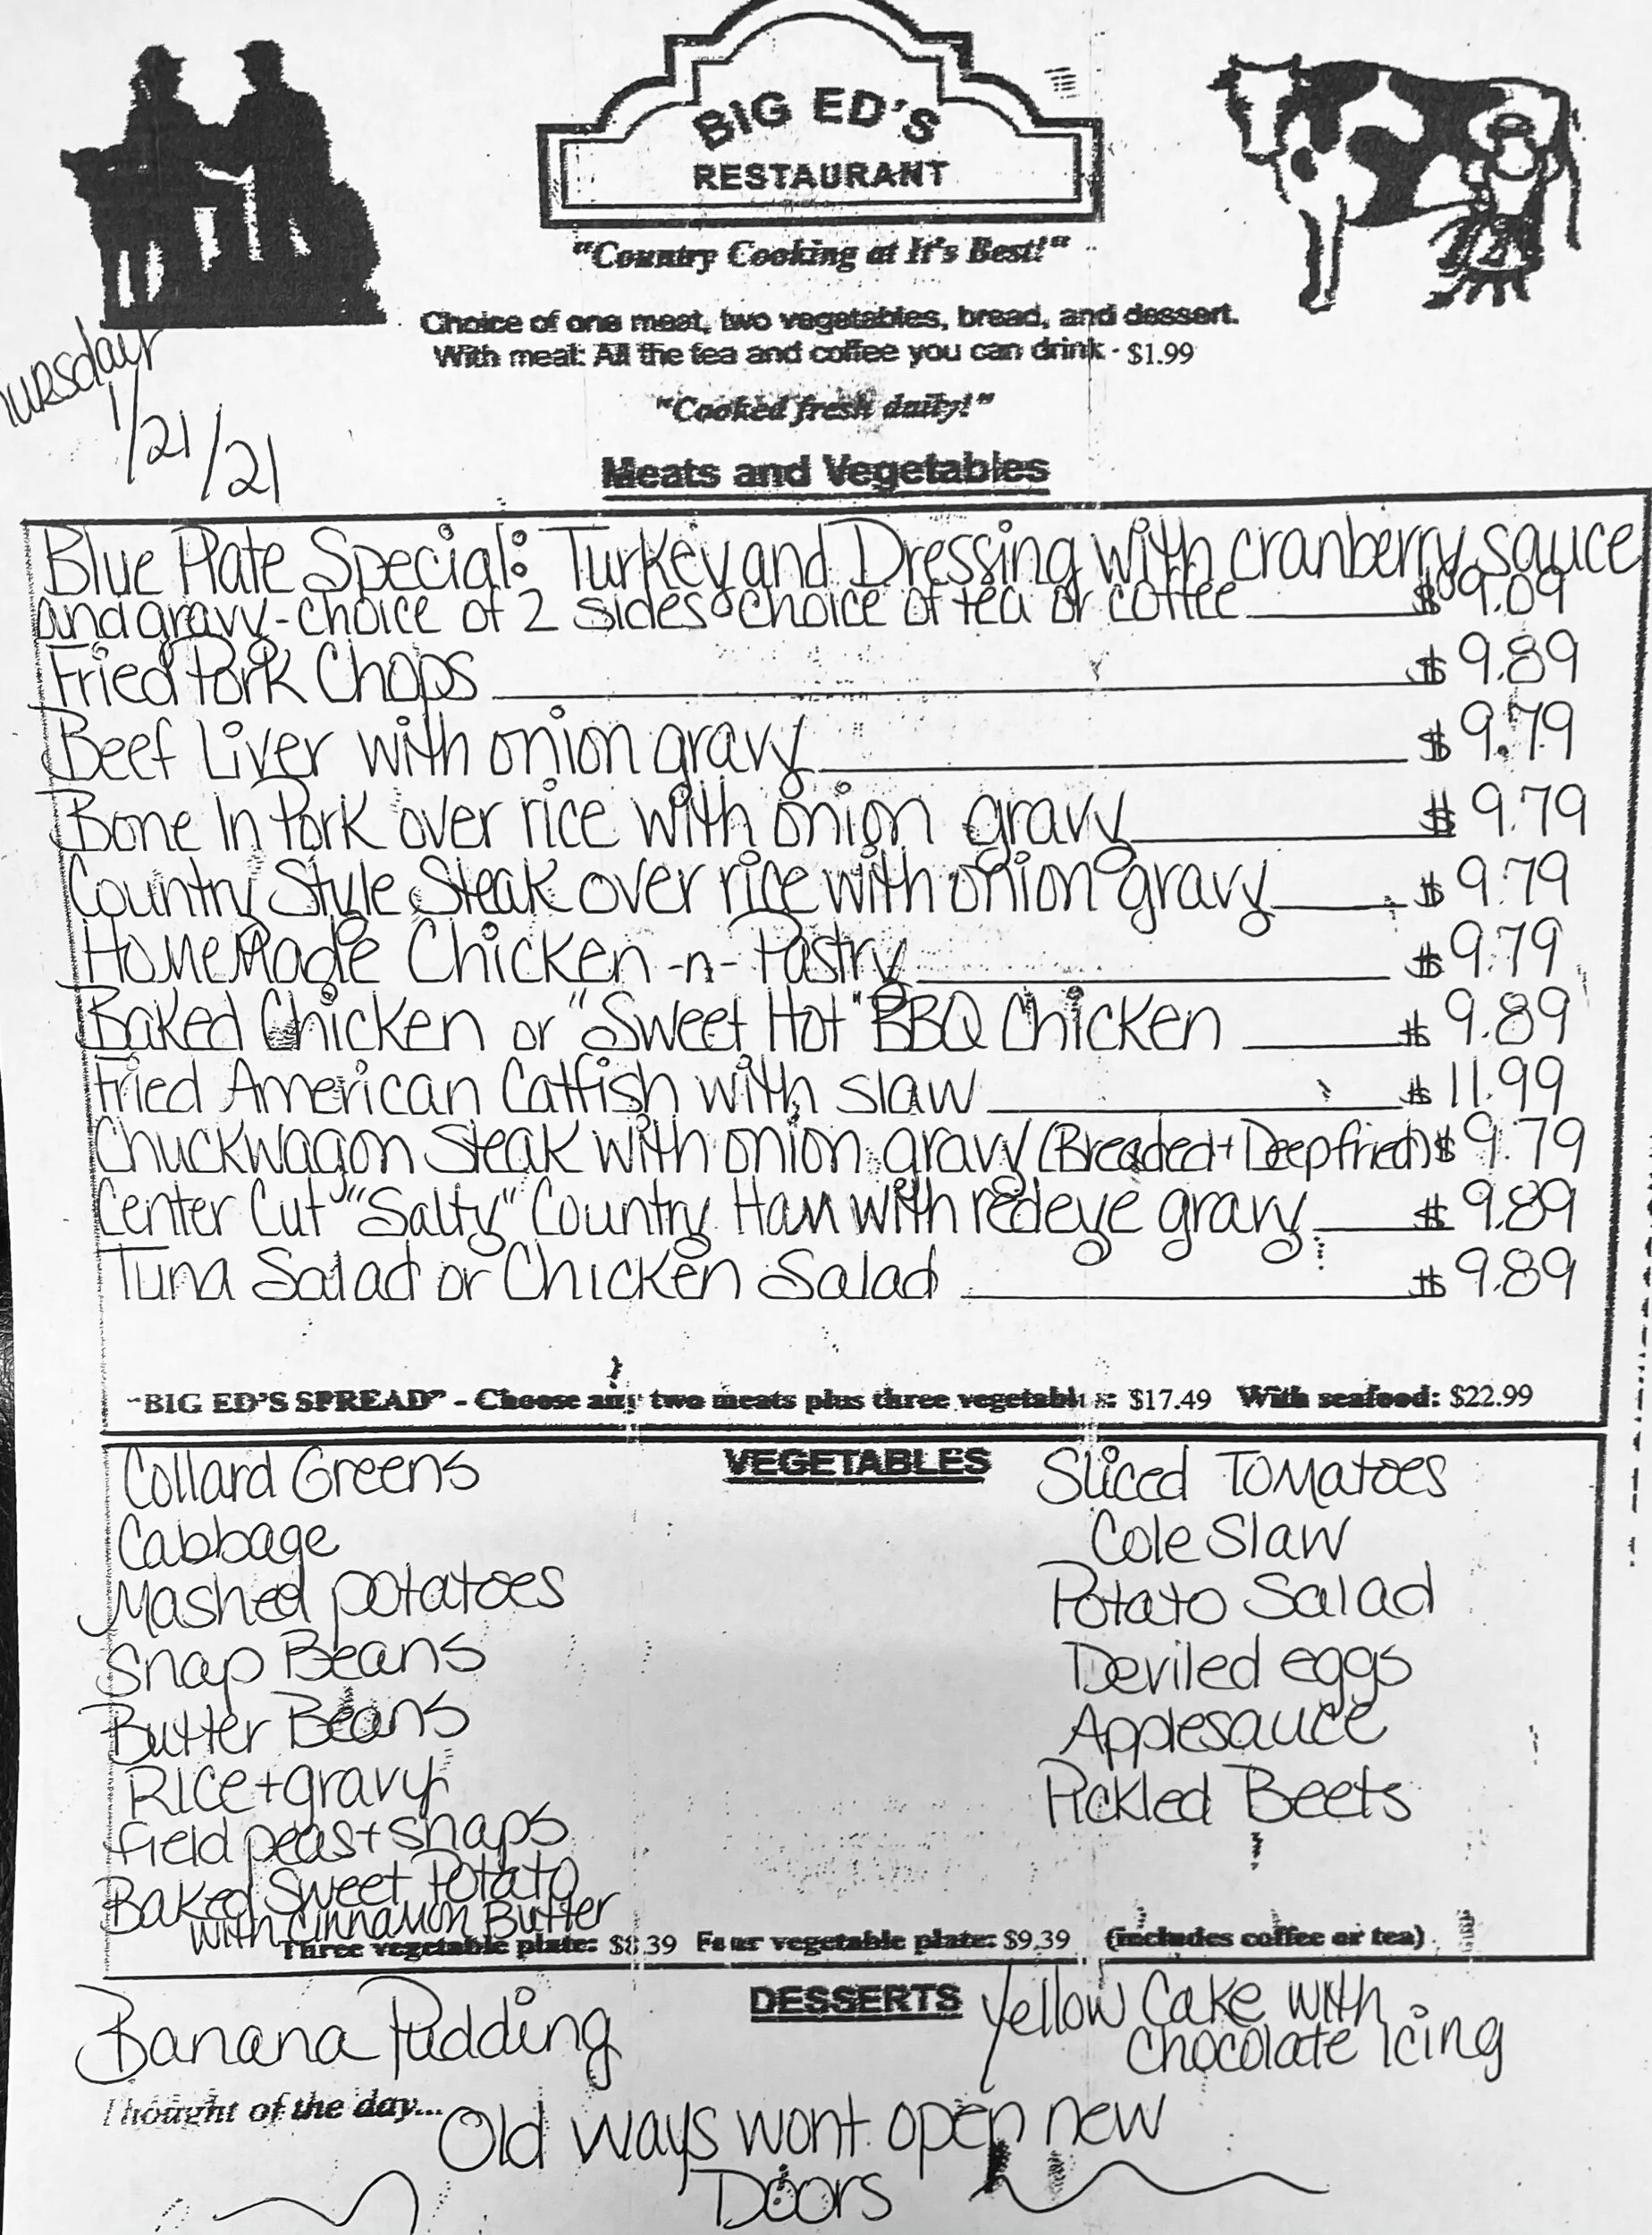 BIG ED'S
RESTAURANT
"Country Cooking at It's Best!"
Choice of one meat, two vegetables, bread, and dessert.
With meal: All the tea and coffee you can drink - $1.99
"Cooked fresh daily!"
Thursday
1/21/21
Meats and Vegetables
Blue Plate Special: Turkey and Dressing with cranberry sauce
and gravy - choice of 2 sides choice of tea or coffee $9.09
Fried Pork Chops $9.89
Beef Liver with onion gravy $9.79
Bone In Pork over rice with onion gravy $9.79
Country Style Steak over rice with onion gravy $9.79
HomeMade Chicken -n- Pastry $9.79
Baked Chicken or "Sweet Hot" BBQ Chicken $9.89
Fried American Catfish with slaw $11.99
Chuckwagon Steak with onion gravy (Breaded + Deep fried) $9.79
Center Cut "Salty" Country Ham with redeye gravy $9.89
Tuna Salad or Chicken Salad $9.89
"BIG ED'S SPREAD" - Choose any two meats plus three vegetables: $17.49 With seafood: $22.99
VEGETABLES
Collard Greens
Cabbage
Mashed potatoes
Snap Beans
Butter Beans
Rice + gravy
Field peas + snaps
Baked Sweet Potato
with Cinnamon Butter
Sliced Tomatoes
Cole Slaw
Potato Salad
Deviled eggs
Applesauce
Pickled Beets
Three vegetable plate: $8.39 Four vegetable plate: $9.39 (includes coffee or tea)
DESSERTS
Banana Pudding
Yellow Cake with
Chocolate Icing
Thought of the day...
Old ways wont open new
Doors